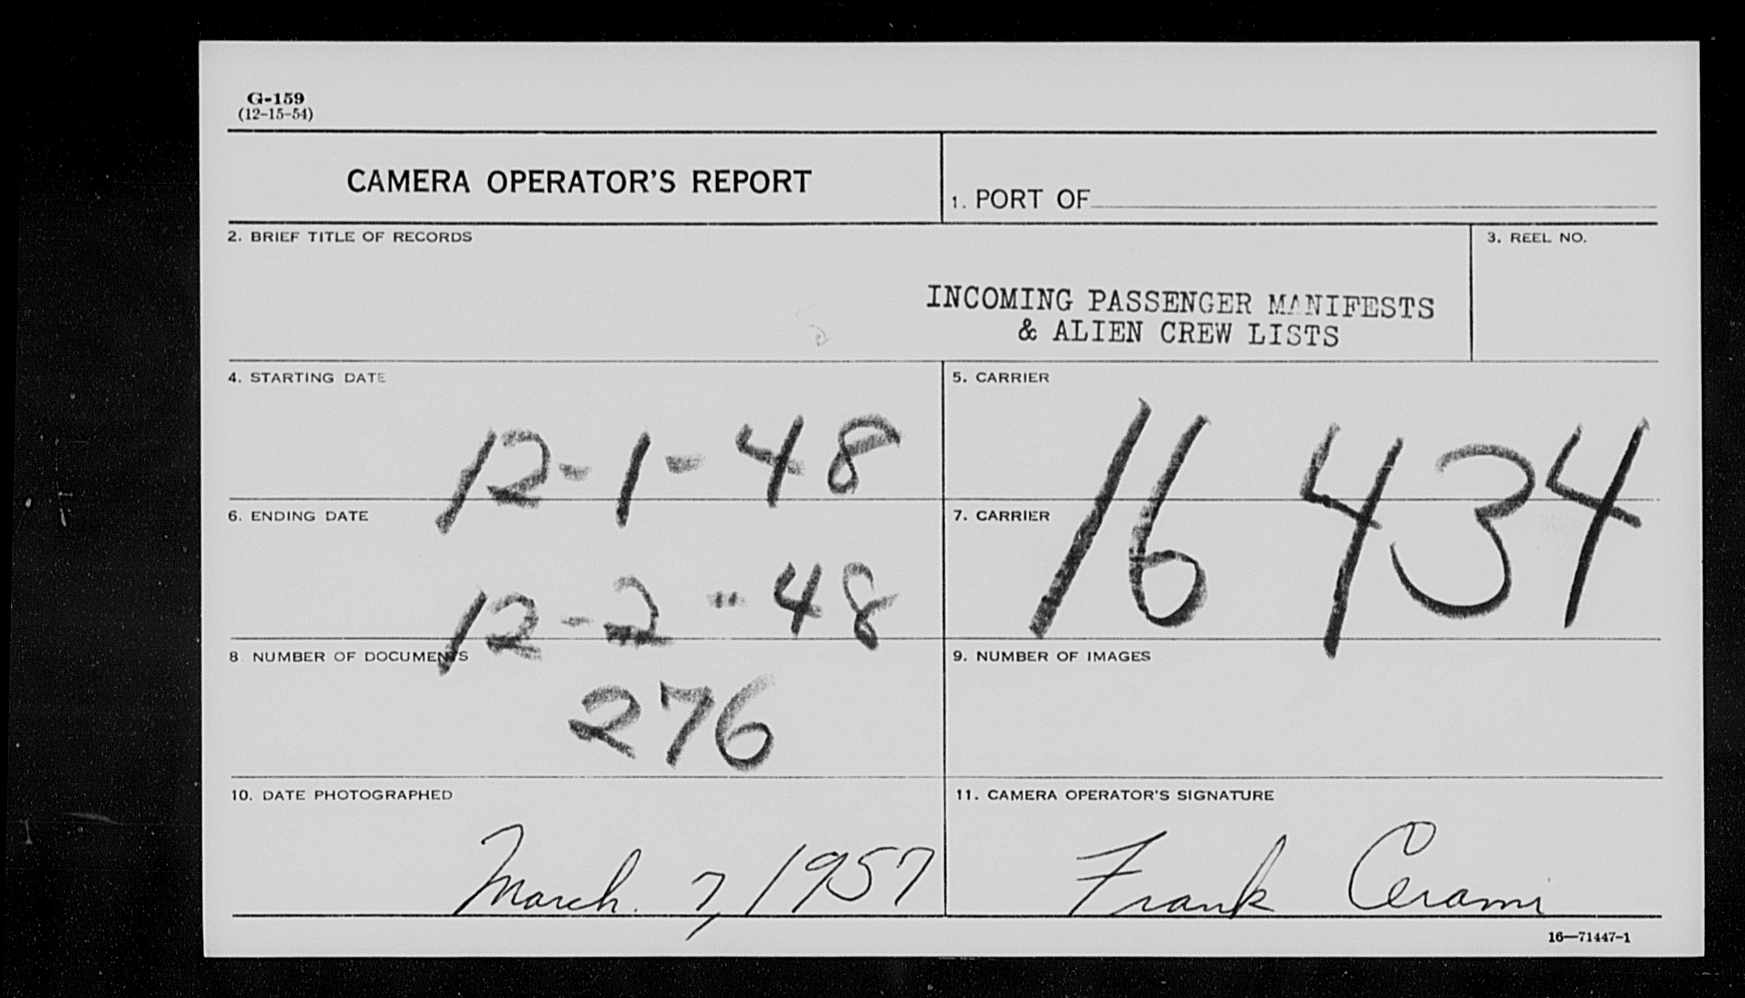 G-159
(12-15-54)
CAMERA OPERATOR'S REPORT
1. PORT OF
2. BRIEF TITLE OF RECORDS
3. REEL NO.
INCOMING PASSENGER MANIFESTS
& ALIEN CREW LISTS
4. STARTING DATE
12-1-48
5. CARRIER
16 434
6. ENDING DATE
12-2-48
7. CARRIER
8 NUMBER OF DOCUMENTS
276
9. NUMBER OF IMAGES
10. DATE PHOTOGRAPHED
March. 7, 1957
11. CAMERA OPERATOR'S SIGNATURE
Frank Cerami
16—71447-1